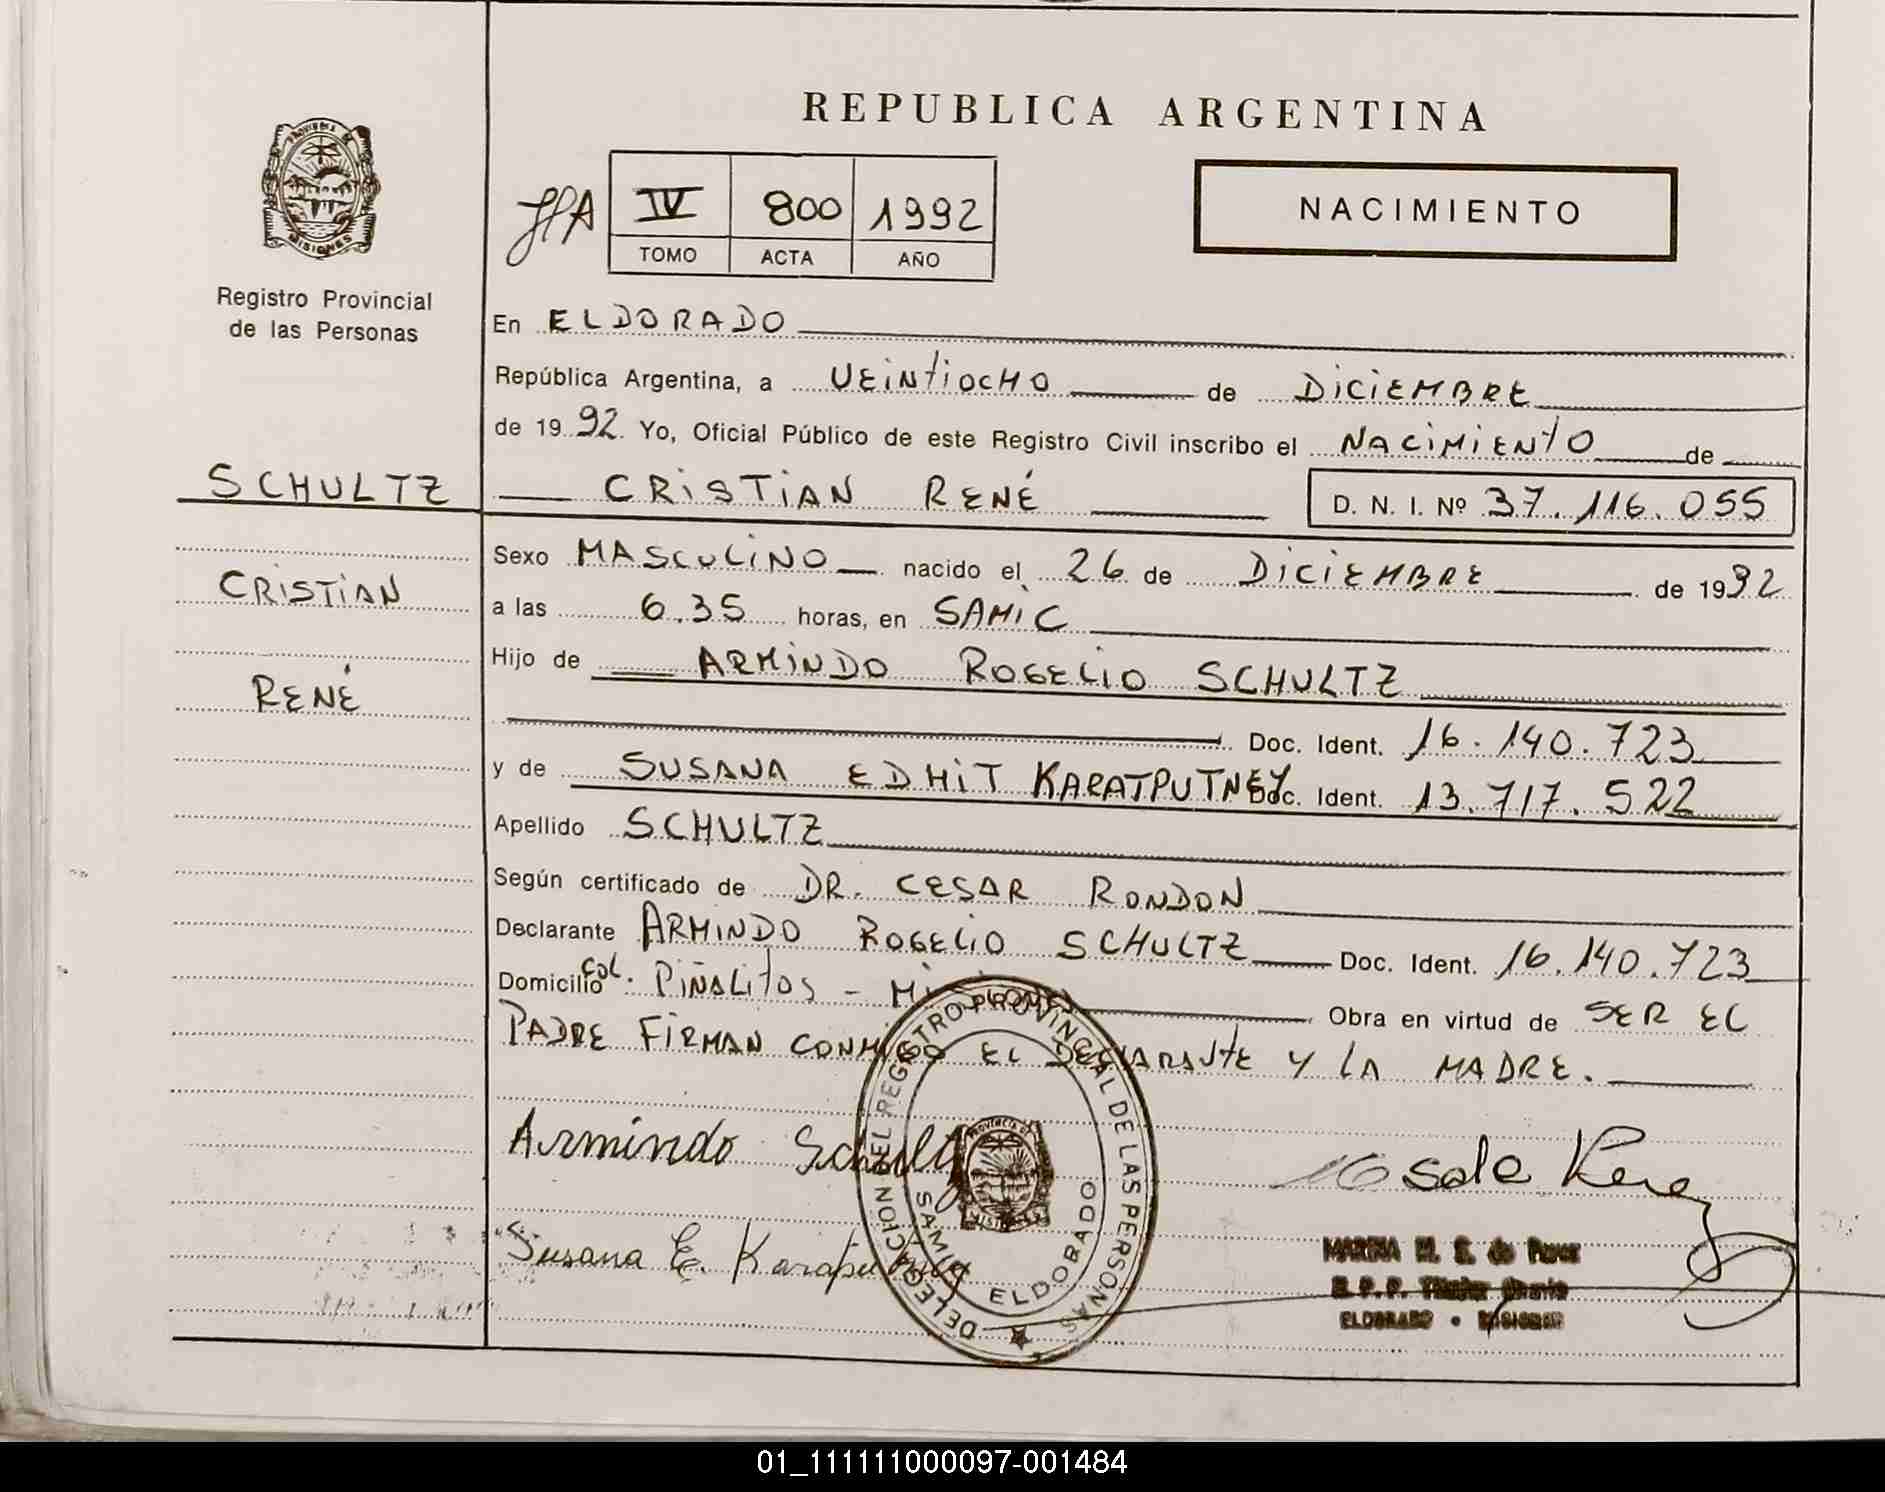 REPUBLICA ARGENTINA
PROVINCIA DE
MISIONES
Registro Provincial
de las Personas
IV 800 1992
TOMO ACTA AÑO
NACIMIENTO
En ELDORADO
República Argentina, a VEINTIOCHO de DICIEMBRE
de 1992. Yo, Oficial Público de este Registro Civil inscribo el NACIMIENTO de
SCHULTZ
CRISTIAN RENÉ D. N. I. Nº 37.116.055
CRISTIAN
RENÉ
Sexo MASCULINO nacido el 26 de DICIEMBRE de 1992
a las 6.35 horas, en SAMIC
Hijo de ARMINDO ROGELIO SCHULTZ
Doc. Ident. 16.140.723
y de SUSANA EDHIT KARATPUTNEY Doc. Ident. 13.717.522
Apellido SCHULTZ
Según certificado de DR. CESAR RONDON
Declarante ARMINDO ROGELIO SCHULTZ Doc. Ident. 16.140.723
Domicilio COL. PIÑALITOS - Obra en virtud de SER EL
PADRE FIRMAN CONMIGO EL DECLARANTE Y LA MADRE.
Armindo Schultz
Susana E.
DELEGACION DEL REGISTRO PROVINCIAL DE LAS PERSONAS
SAMIC ELDORADO
PROVINCIA DE
MISIONES
de
ELDORADO - MISIONES
01_111111000097-001484